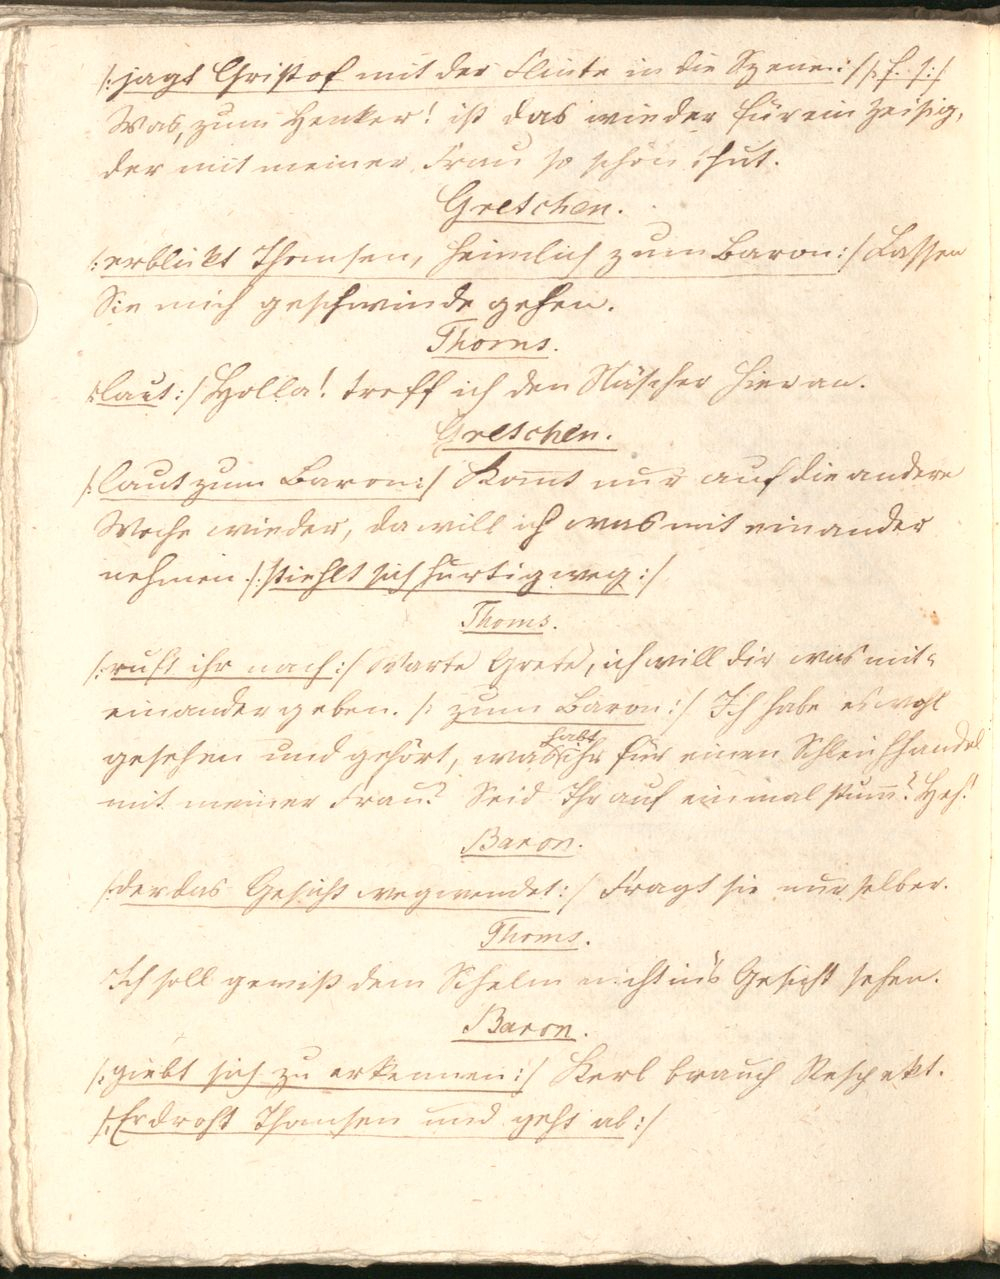 /: jagt Christof mit der Flinte in die Szene. :/ /: f. f. :/
Was, zum Henker! ist das wieder für ein Zeisig,
der mit meiner Frau so schön thut.
Gretchen.
/: erblickt Thomsen, heimlich zum Baron :/ Lassen
Sie mich geschwinde gehen.
Thoms.
/: laut :/ Holla! treff ich den Näscher hier an.
Gretchen.
/: laut zum Baron :/ Komt nur auf die andere
Woche wieder, da will ich was mit einander
nehmen. /: stiehlt sich hurtig weg :/
Thoms.
/: ruft ihr nach :/ Warte Grete, ich will dir was mit-
einander geben. /: zum Baron :/ Ich habe es wohl
gesehen und gehört, was ihr habt für einen Schleichhandel
mit meiner Frau? Seid Ihr auf einmal stumm? He!
Baron.
/: der das Gesicht wegwendet :/ Fragt sie nur selber.
Thoms.
Ich soll gewiß dem Schelm nicht ins Gesicht sehen.
Baron.
/: giebt sich zu erkennen :/ Kerl brauch Respekt.
/: Er droht Thomsen und geht ab :/